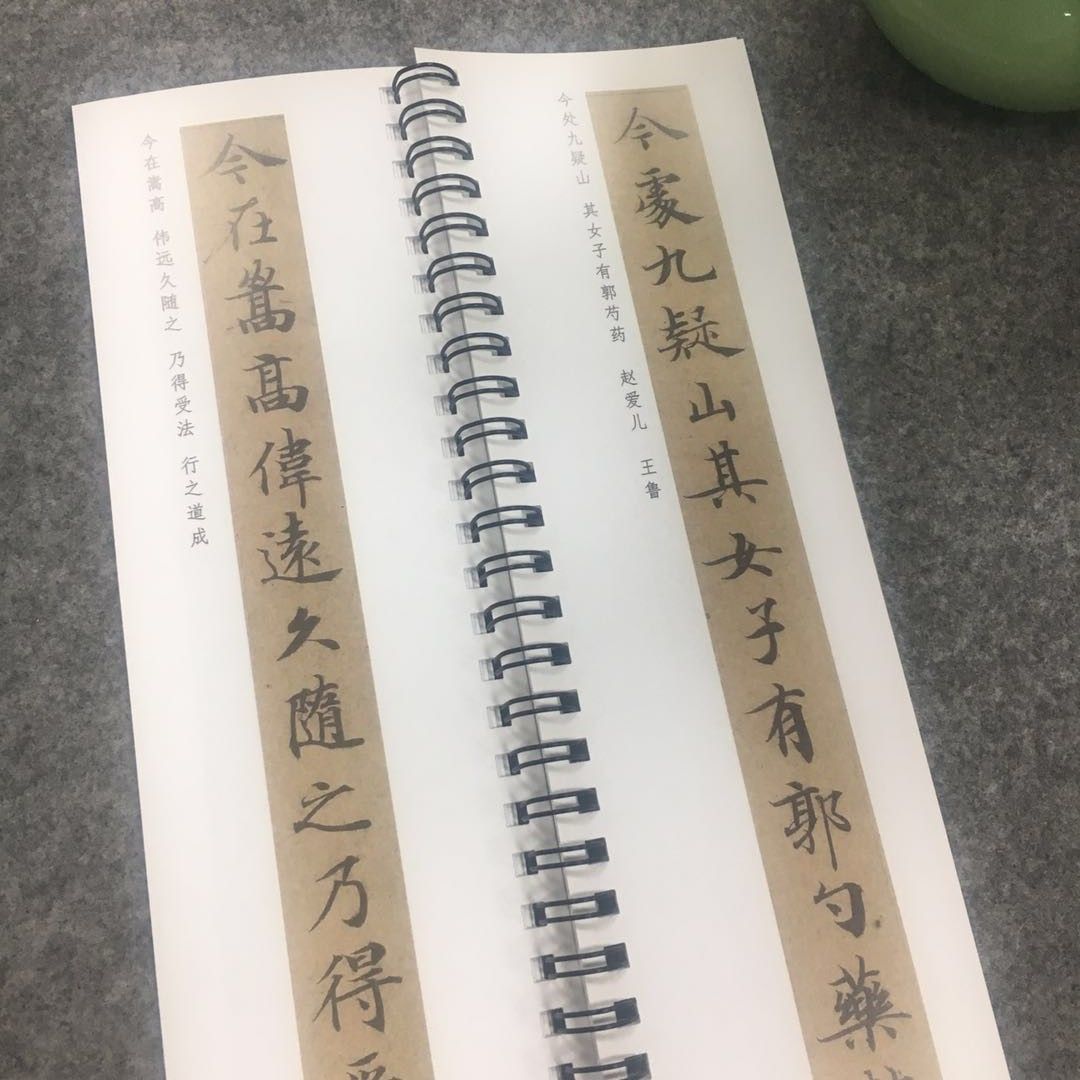 今處九疑山其女子有郭勺藥
今处九疑山 其女子有郭芍药 赵爱儿 王鲁
今在嵩高偉遠久隨之乃得受
今在嵩高 伟远久随之 乃得受法 行之道成